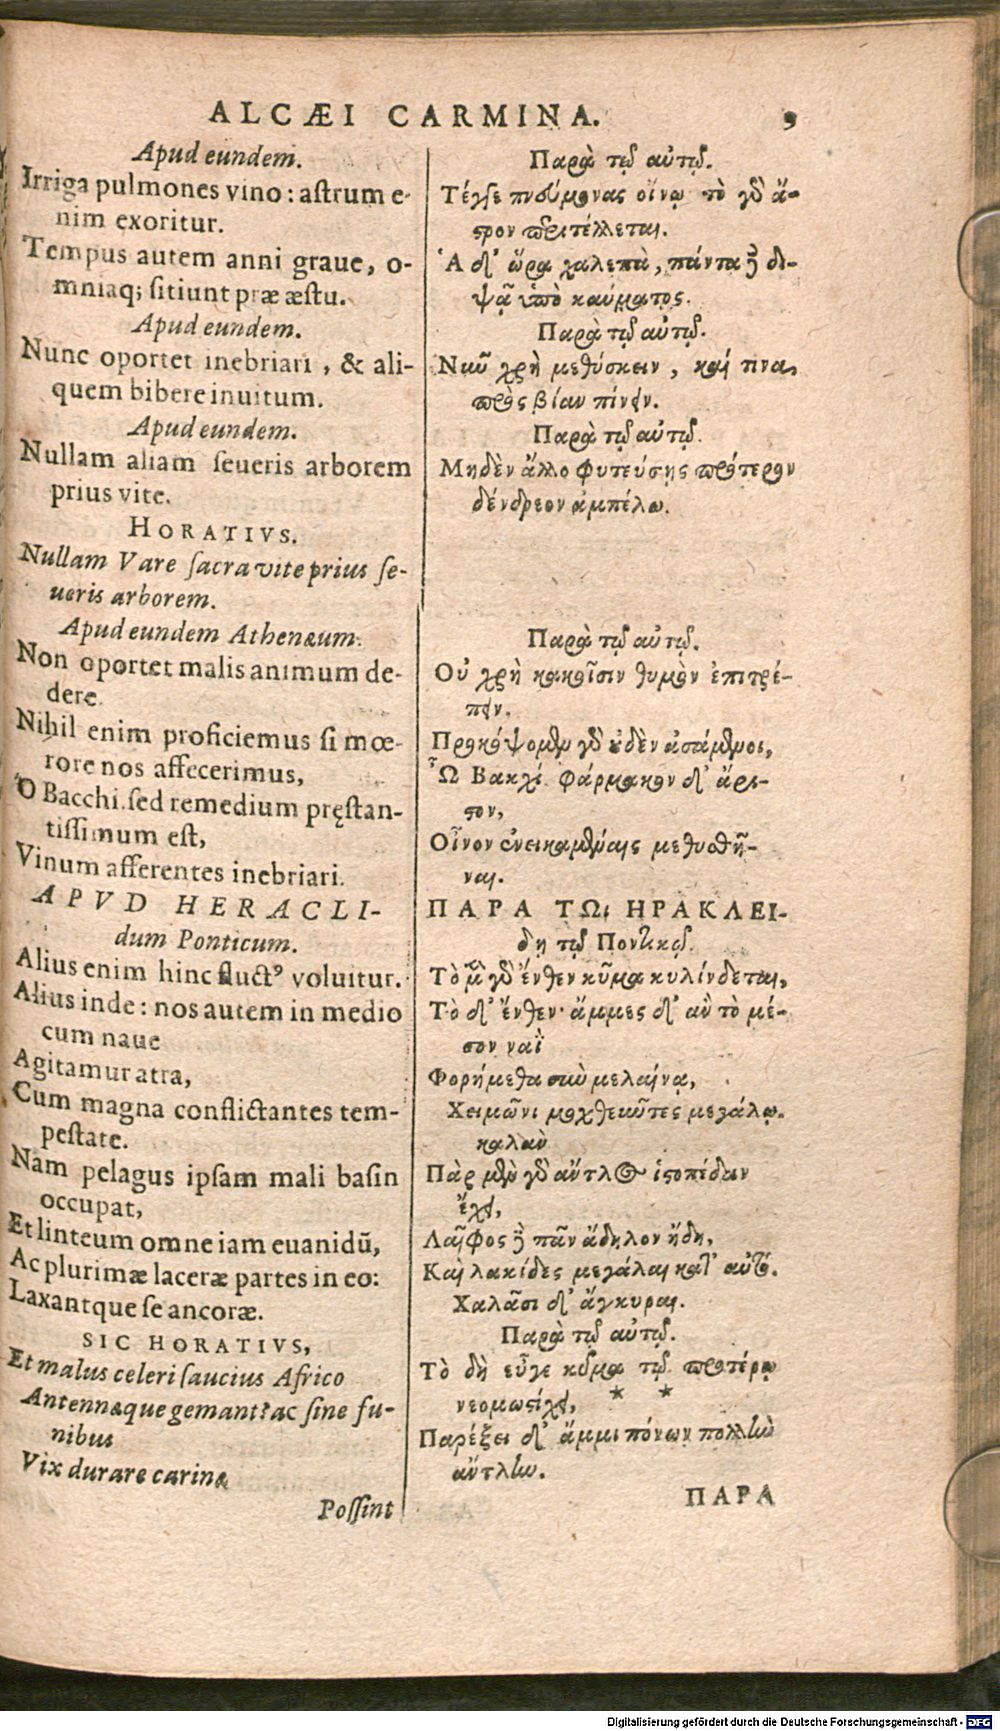 ALCÆI CARMINA. 9
Apud eundem.
Irriga pulmones vino: astrum e-
nim exoritur.
Tempus autem anni graue, o-
mniaq; sitiunt præ æstu.
Apud eundem.
Nunc oportet inebriari, & ali-
quem bibere inuitum.
Apud eundem.
Nullam aliam seueris arborem
prius vite.
HORATIVS.
Nullam Vare sacra vite prius se-
ueris arborem.
Apud eundem Athenæum.
Non oportet malis animum de-
dere.
Nihil enim proficiemus si mœ-
rore nos affecerimus,
O Bacchi. sed remedium pręstan-
tissimum est,
Vinum afferentes inebriari.
APVD HERACLI-
dum Ponticum.
Alius enim hinc fluctꝰ voluitur.
Alius inde: nos autem in medio
cum naue
Agitamur atra,
Cum magna conflictantes tem-
pestate.
Nam pelagus ipsam mali basin
occupat,
Et linteum omne iam euanidũ,
Ac plurimæ laceræ partes in eo:
Laxantque se ancoræ.
SIC HORATIVS,
Et malus celeri saucius Africo
Antennæque gemant? ac sine fu-
nibus
Vix durare carinæ
Possint
Παρὰ τῷ αὐτῷ.
Τέγγε πνεύμονας οἴνῳ τὸ γὰρ ἄ-
στρον περιτέλλεται.
Ἁ δ' ὥρα χαλεπὰ, πάντα δὲ δι-
ψᾷ ὑπὸ καύματος.
Παρὰ τῷ αὐτῷ.
Νῦν χρὴ μεθύσκειν, καί τινα,
πρὸς βίαν πίνειν.
Παρὰ τῷ αὐτῷ.
Μηδὲν ἄλλο φυτεύσῃς πρότερον
δένδρεον ἀμπέλω.
Παρὰ τῷ αὐτῷ.
Οὐ χρὴ κακοῖσιν θυμὸν ἐπιτρέ-
πειν.
Προκόψομεν γὰρ οὐδὲν ἀσάμενοι,
Ὦ Βακχί φάρμακον δ' ἄρι-
στον,
Οἶνον ἐνεικαμέναις μεθυσθῆ-
ναι.
ΠΑΡΑ ΤΩι ΗΡΑΚΛΕΙ-
δῃ τῷ Ποντικῷ.
Τὸ μὲν γὰρ ἔνθεν κῦμα κυλίνδεται,
Τὸ δ' ἔνθεν· ἄμμες δ' ἂν τὸ μέ-
σον ναῒ
Φορήμεθα σὺν μελαίνᾳ,
Χειμῶνι μοχθεῦντες μεγάλῳ.
καλὰν
Πὰρ μὲν γὰρ αὔτλος ἱστοπέδαν
ἔχει,
Λαῖφος δὲ πᾶν ἄδηλον ἤδη,
Καὶ λακίδες μεγάλαι κατ' αὐτό.
Χαλᾶσι δ' ἄγκυραι.
Παρὰ τῷ αὐτῷ.
Τὸ δὴ εὖγε κῦμα τῷ προτέρῳ
νεομωσίχει, * *
Παρέξει δ' ἄμμι πόνων πολλὺν
αὔτλην.
ΠΑΡΑ
Digitalisierung gefördert durch die Deutsche Forschungsgemeinschaft - DFG